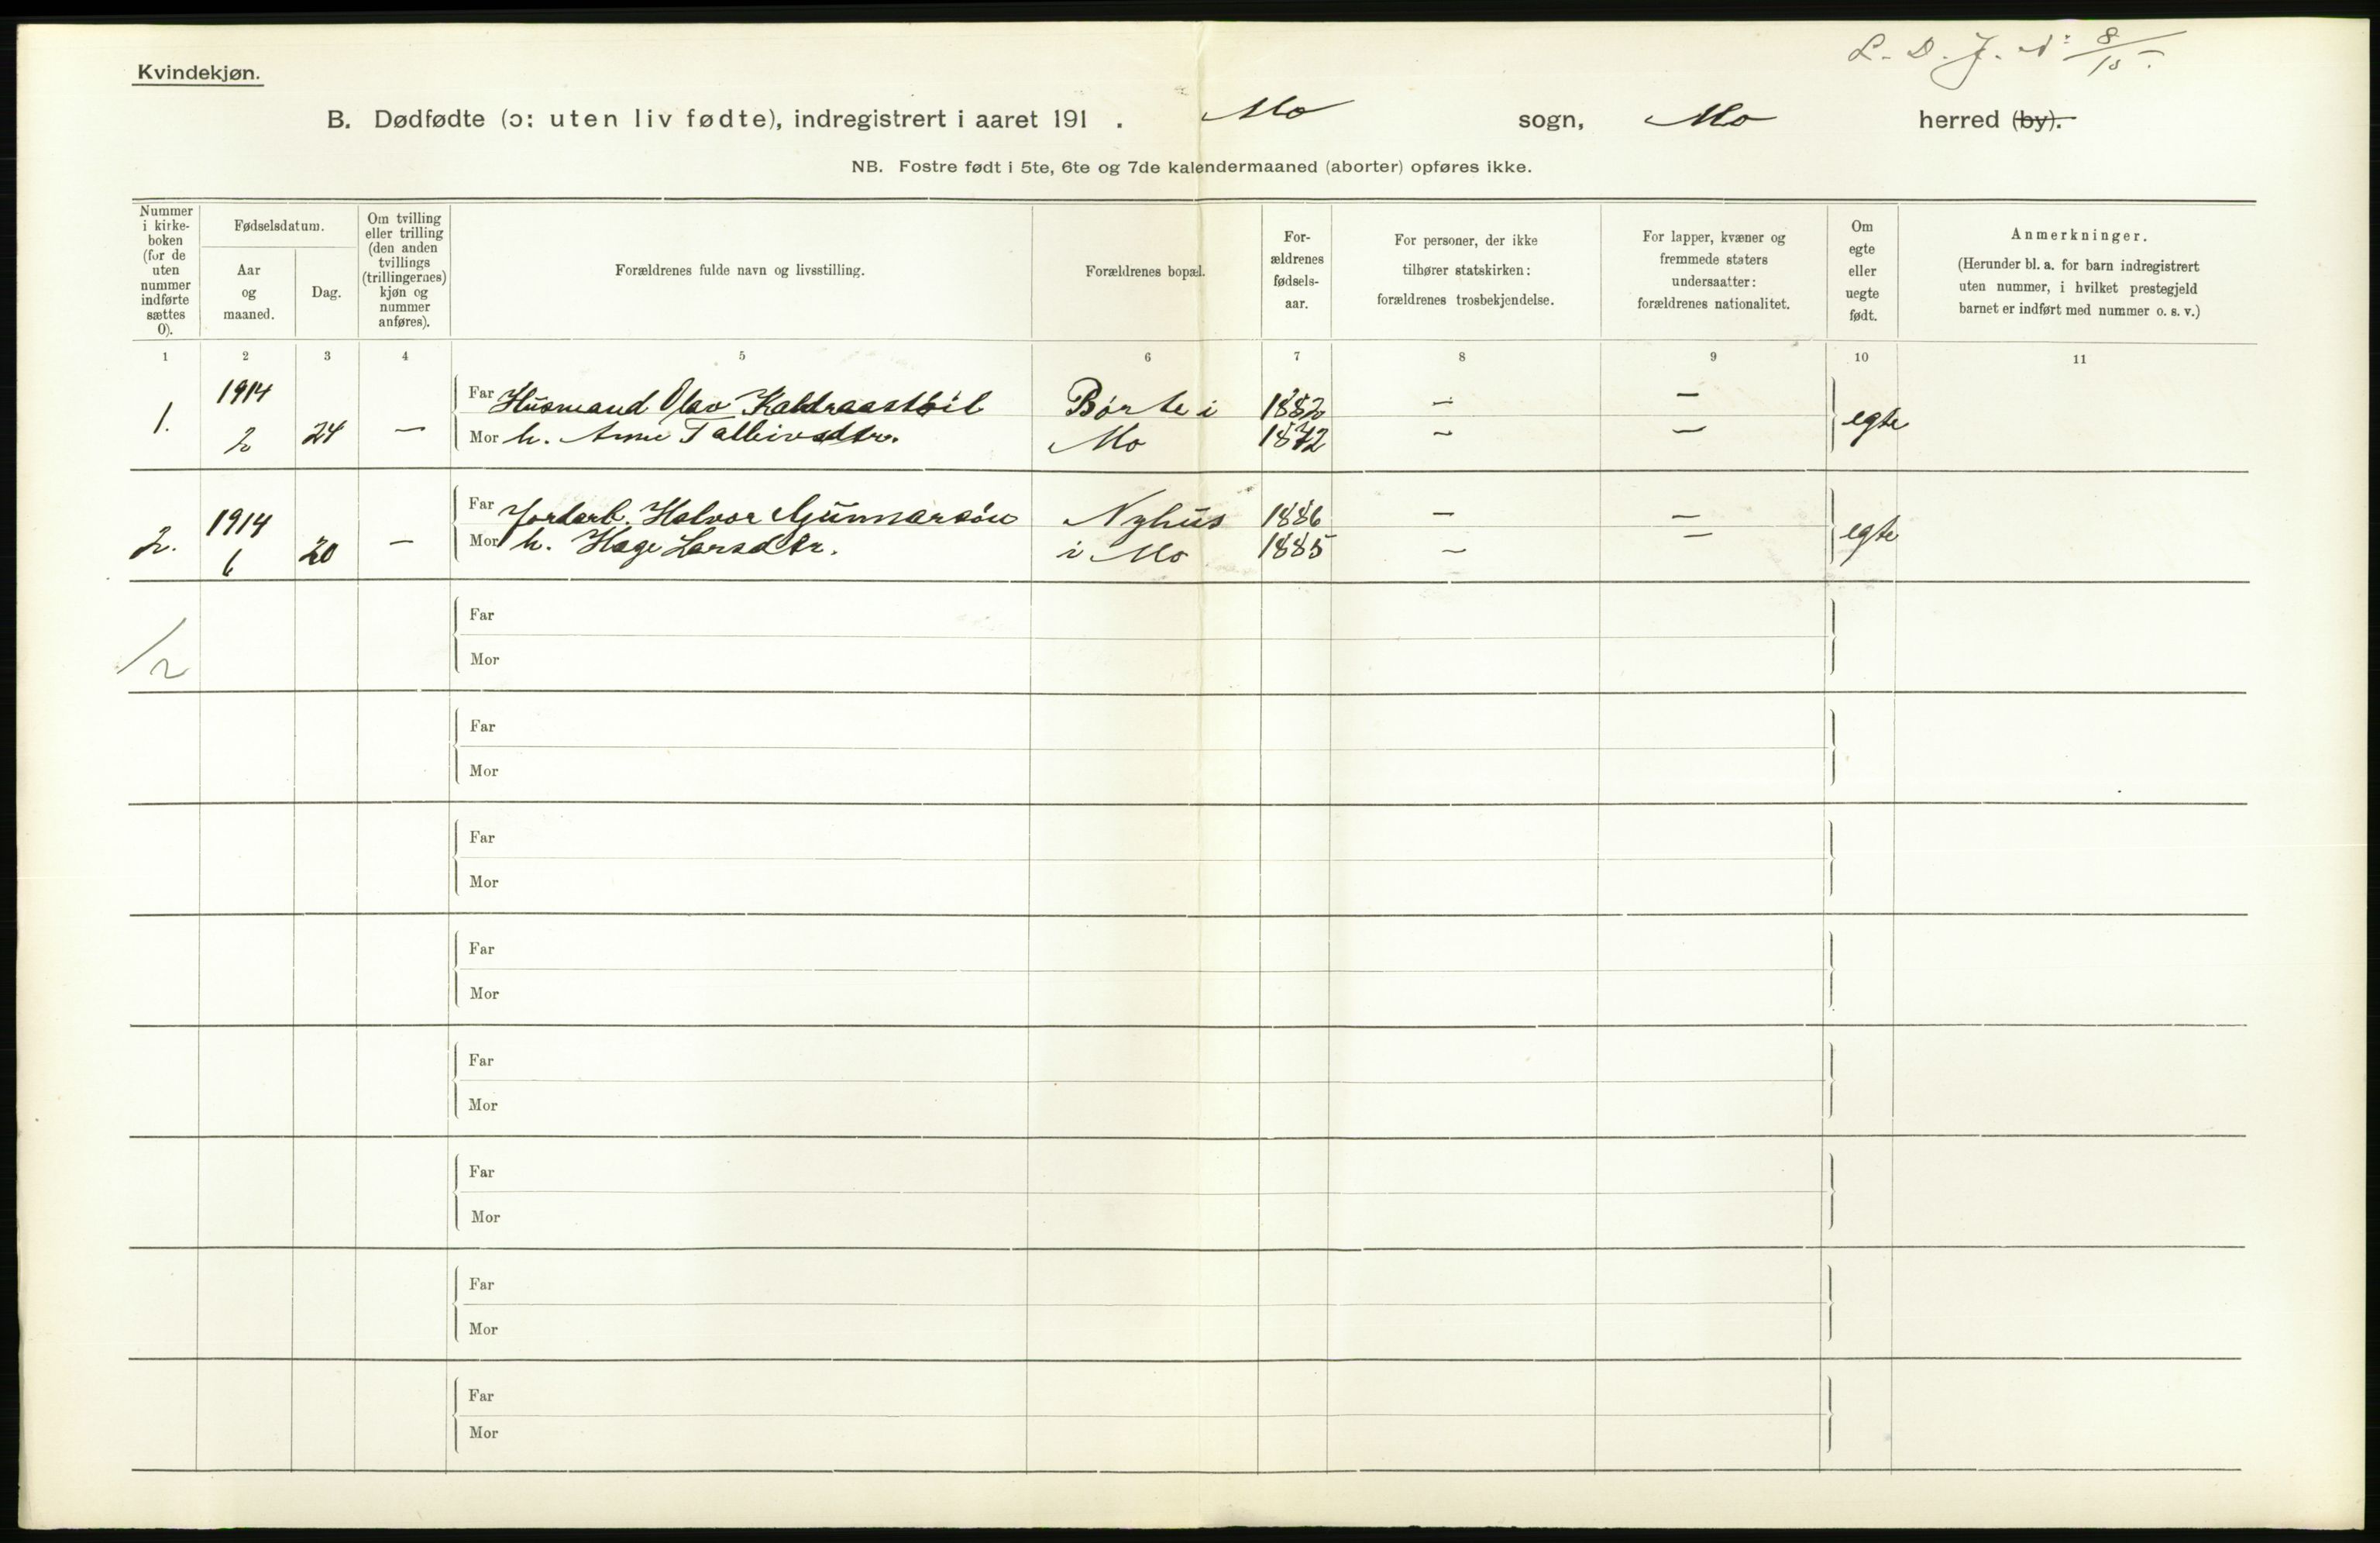 L. D. J. N: 8/15.
Kvindekjøn.
B. Dødfødte (ɔ: uten liv fødte), indregistrert i aaret 191 . Mo sogn, Mo herred (by).
NB. Fostre født i 5te, 6te og 7de kalendermaaned (aborter) opføres ikke.
Nummer
i kirke-
boken
(for de
uten
nummer
indførte
sættes
0).
Fødselsdatum.
Aar
og
maaned.
Dag.
Om tvilling
eller trilling
(den anden
tvillings
(trillingernes)
kjøn og
nummer
anføres).
Forældrenes fulde navn og livsstilling.
Forældrenes bopæl.
For-
ældrenes
fødsels-
aar.
For personer, der ikke
tilhører statskirken:
forældrenes trosbekjendelse.
For lapper, kvæner og
fremmede staters
undersaatter:
forældrenes nationalitet.
Om
egte
eller
uegte
født.
Anmerkninger.
(Herunder bl. a. for barn indregistrert
uten nummer, i hvilket prestegjeld
barnet er indført med nummer o. s. v.)
1 2 3 4 5 6 7 8 9 10 11
1914 Far Husmand Olav Børte i 1882 — —
1. 2 24 — Mor h. Anne Talleivsdtr. Mo 1872 — — egte
1914 Far Jordarb. Halvor Gunnarsøn Nyhus 1886 — —
2. 6 20 — Mor h. Hage Larsdtr. i Mo 1885 — — egte
Far
/2 Mor
Far
Mor
Far
Mor
Far
Mor
Far
Mor
Far
Mor
Far
Mor
Far
Mor